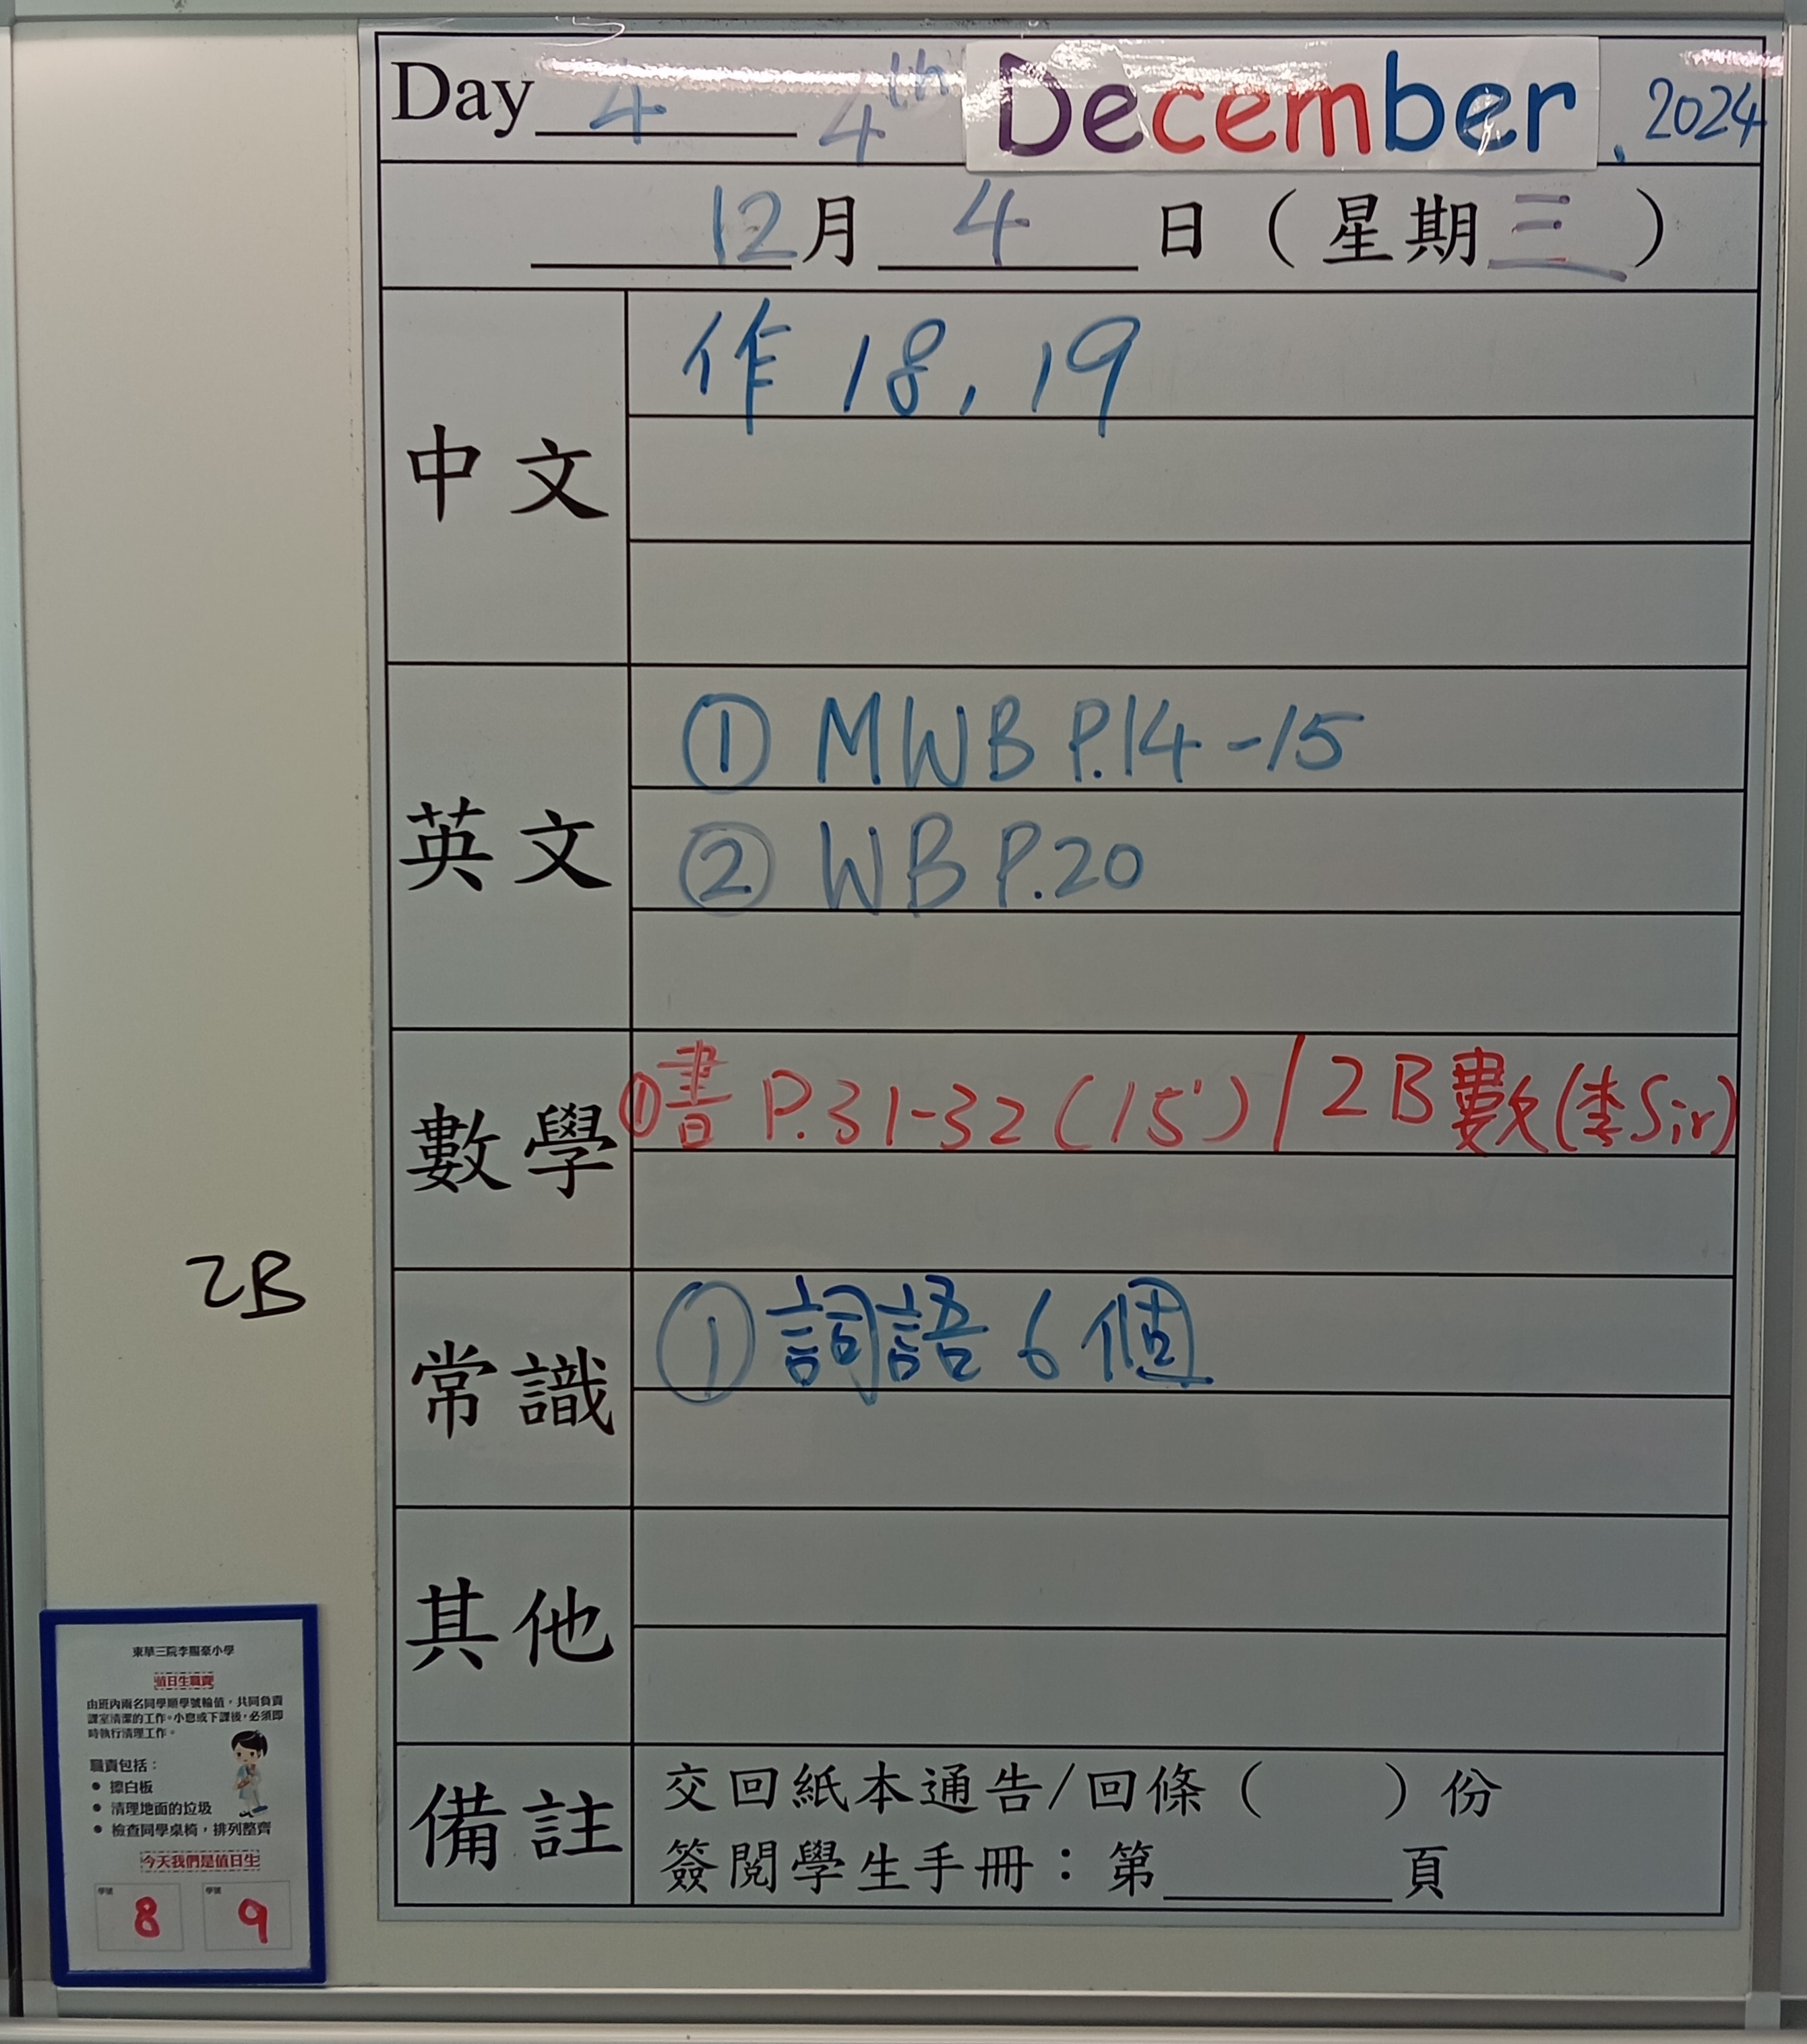 Day 4 4th December, 2024
12月 4 日（星期三）
中文
作 18, 19
英文
① MWB P.14-15
② WB P.20
數學
①書 P.31-32 (15') / 2B數(李Sir)
常識
①詞語6個
其他
備註
交回紙本通告/回條（ ）份
簽閱學生手冊：第______頁
2B
東華三院李賜豪小學
值日生職責
由班內兩名同學順學號輪值，共同負責
課室清潔的工作。小息或下課後，必須即
時執行清理工作。
職責包括：
● 擦白板
● 清理地面的垃圾
● 檢查同學桌椅，排列整齊
今天我們是值日生
學號 學號
8 9